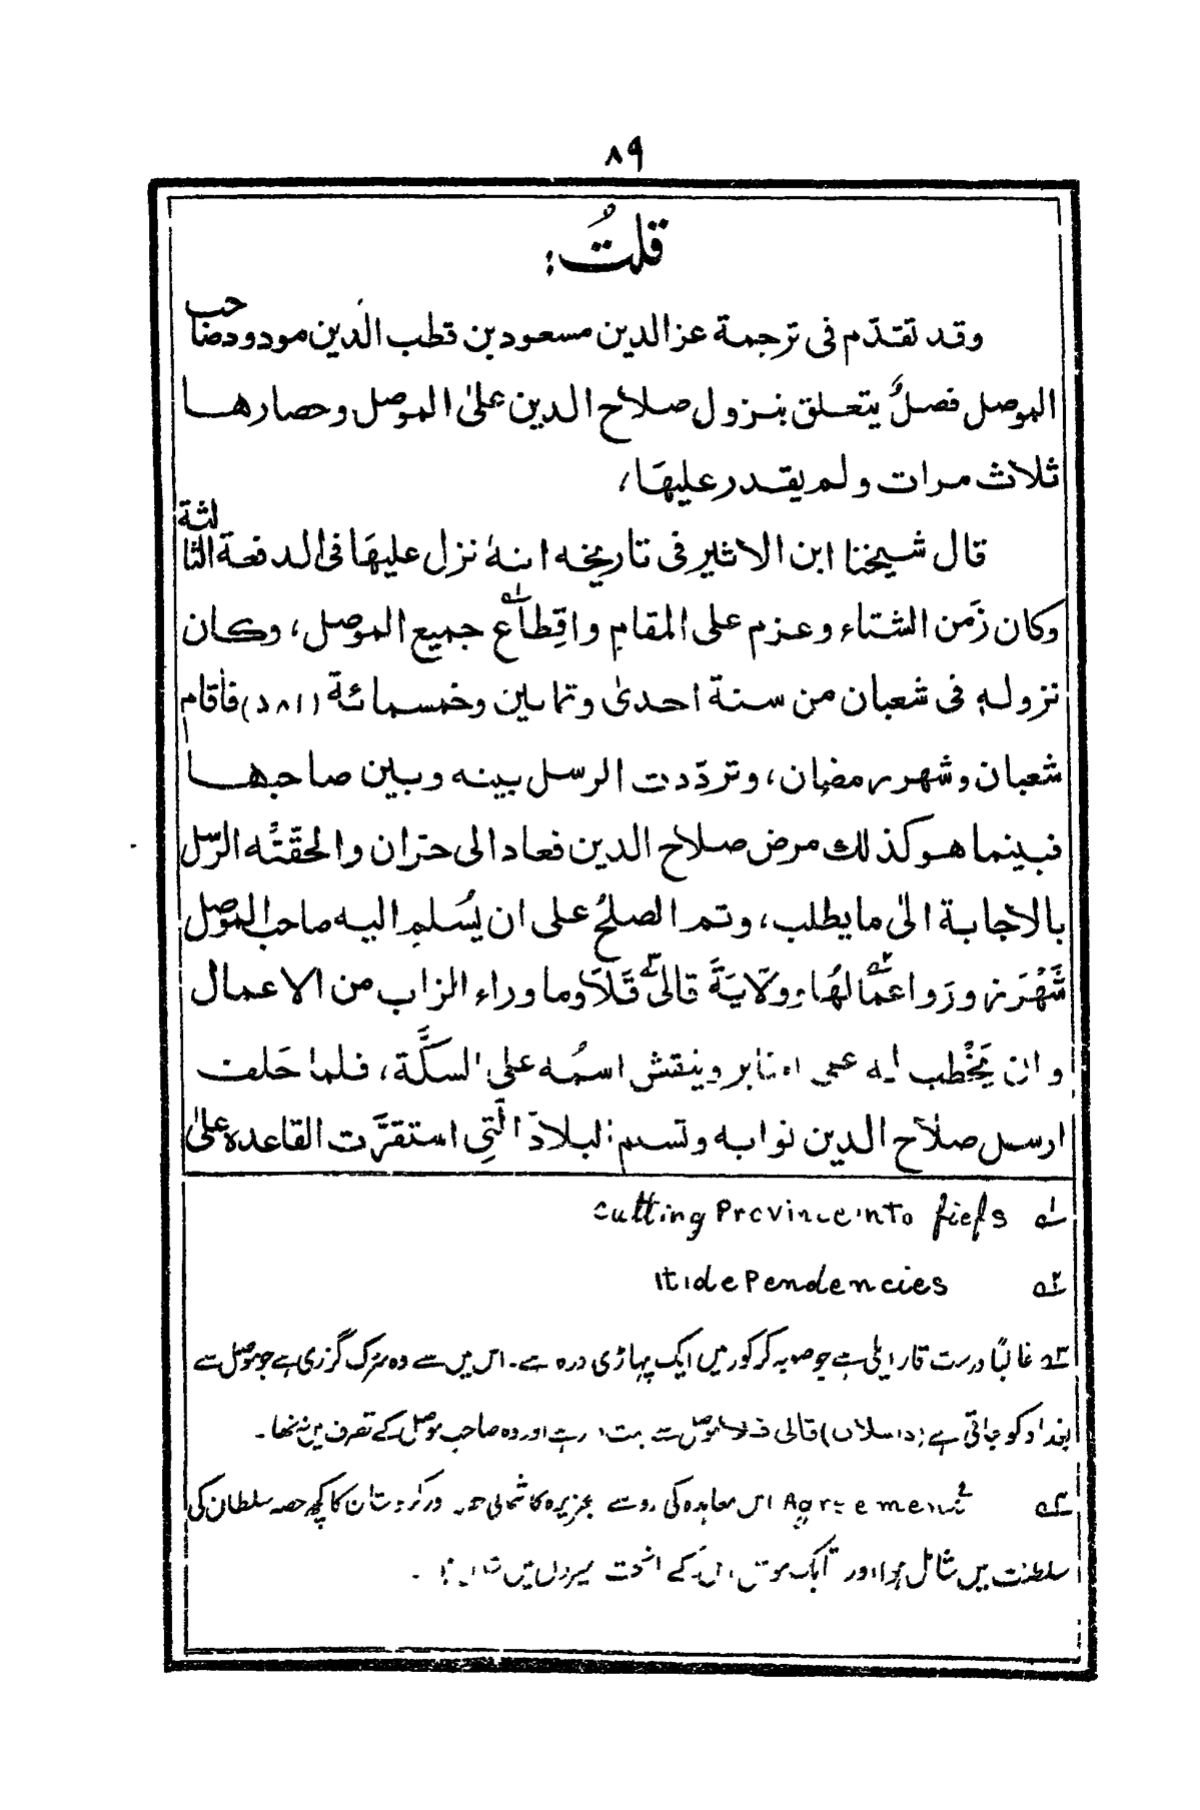 ۸۹
قلتُ:
وقد تقدّم فی ترجمة عز الدین مسعود بن قطب الدین مودود صاحب
الموصل فصلٌ یتعلق بنزول صلاح الدین علیٰ الموصل وحصارها
ثلاث مرات ولم یقدر علیهَا،
قال شیخنا ابن الاثیر فی تاریخه انهٗ نزل علیهَا فی الدفعة الثالثة
وکان زَمن الشتاء وعزم علی المقام واقِطاع۱ جمیع الموصل، وکان
نزوله فی شعبان من سنة احدیٰ وثمانین وخمسمائة (۵۸۱) فأقام
شعبان وشهر رمضان، وتردّدت الرسل بینه وبین صاحبها
فبینما هو کذلك مرض صلاح الدین فعاد الی حرّان والحقَتْه الرّسل
بالاجابة الیٰ ما یطلب، وتم الصلحُ علی ان یُسلم الیه صاحب الموصل
شَهْرَزور واعمَّالهَا۲ ووِلَایَةَ قالی۳ قَلَا وما وراء الزاب من الاعمال
وان یَخْطب له علی المنابر وینقش اسمُه علی السکَّة، فلما حَلف
ارسل صلاح الدین نوابه وتسلم البلاد الَّتی استقرَّت القاعده علیٰ
۱ه cutting Province into fiefs
۲ه It's dependencies
۳ه غالباً درست قارا یلی ہے جو صوبہ کرکور میں ایک پہاڑی درہ ہے۔ اس میں سے وہ سڑک گزری ہے جو موصل سے
بغداد کو جاتی ہے (دی سلان) قالی قلا موصل سے بہت دور ہے اور وہ صاحب موصل کے تصرف میں نہ تھا۔
۴ه Agreement اس معاہدہ کی رو سے جزیرہ کا شمالی حصہ اور کردستان کا کچھ حصہ سلطان کی
سلطنت میں شامل ہوا اور اتابک موصل اس کے ماتحت میں